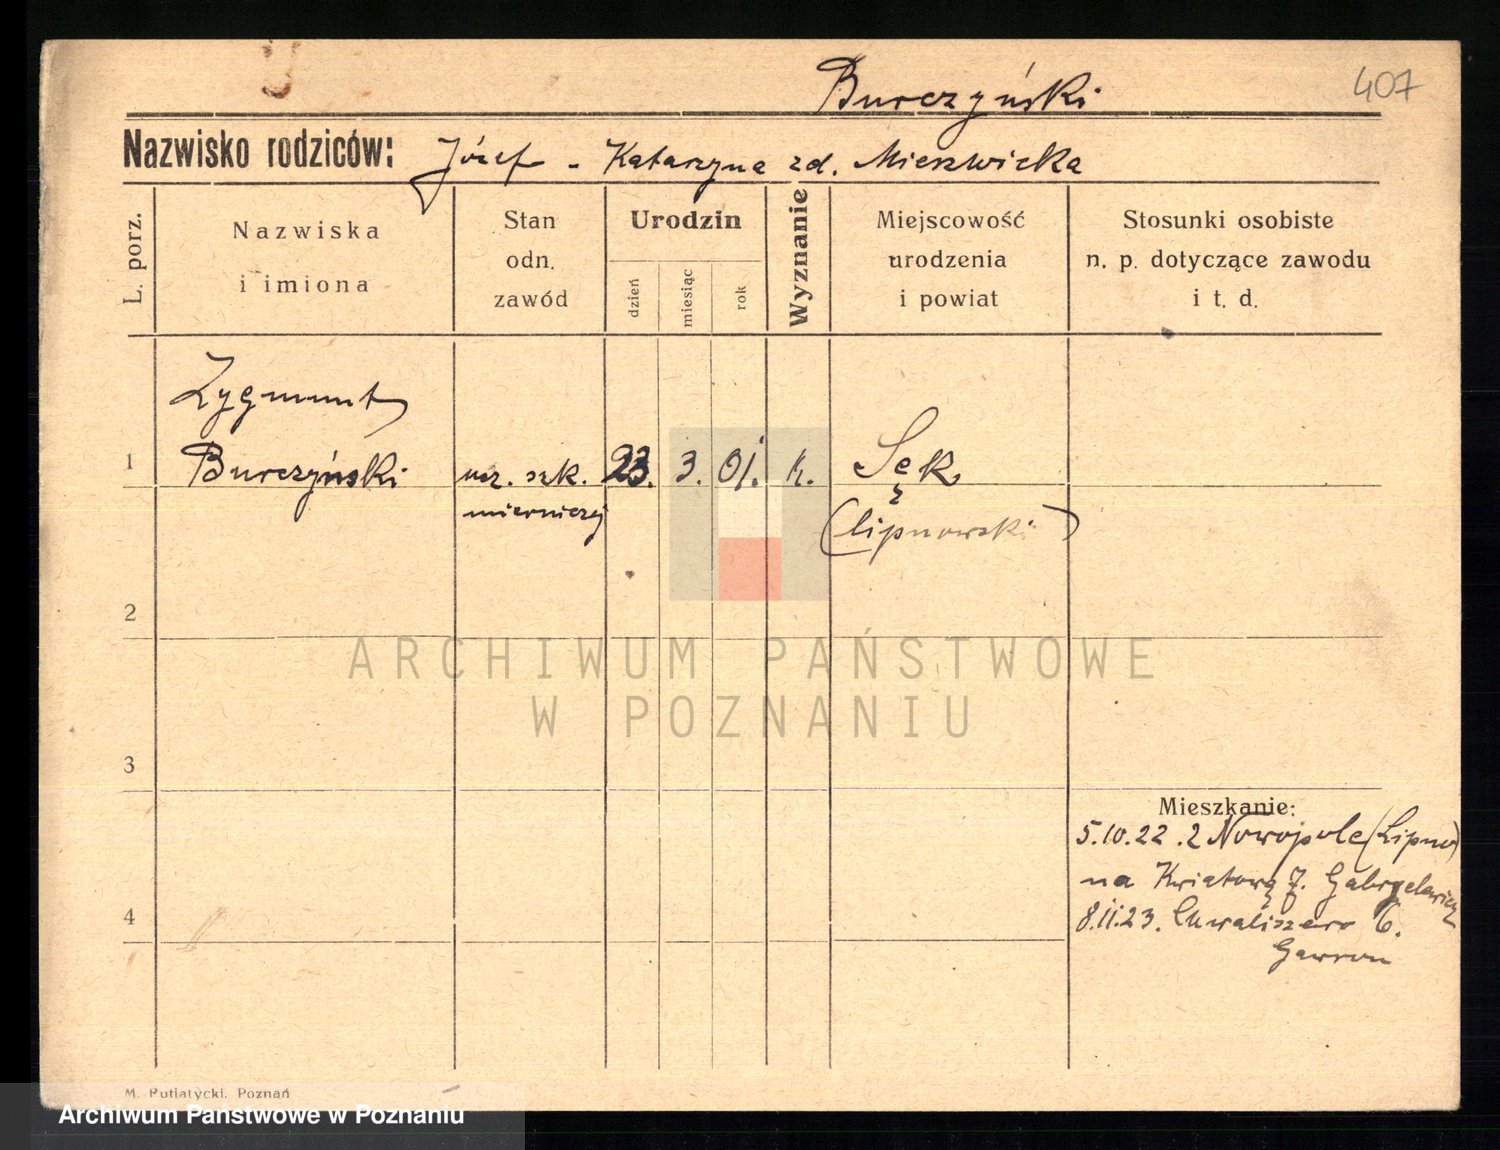 Burczyński
407
Nazwisko rodziców: Józef - Katarzyna zd. Mierzwicka
L. porz.
Nazwiska
i imiona
Stan
odn.
zawód
Urodzin
dzień
miesiąc
rok
Wyznanie
Miejscowość
urodzenia
i powiat
Stosunki osobiste
n. p. dotyczące zawodu
i t. d.
Zygmunt
1 Burczyński ucz. szk. 23. 3. 01. k. Sęk
mierniczej (lipnowski)
2
3
Mieszkanie:
5.10.22. z Nowopole (Lipno)
na Kwiatową 7. Gabryelewicz
4
8.11.23. Chwaliszewo 6.
Gawron
M. Putiatycki. Poznań
ARCHIWUM PAŃSTWOWE
W POZNANIU
Archiwum Państwowe w Poznaniu